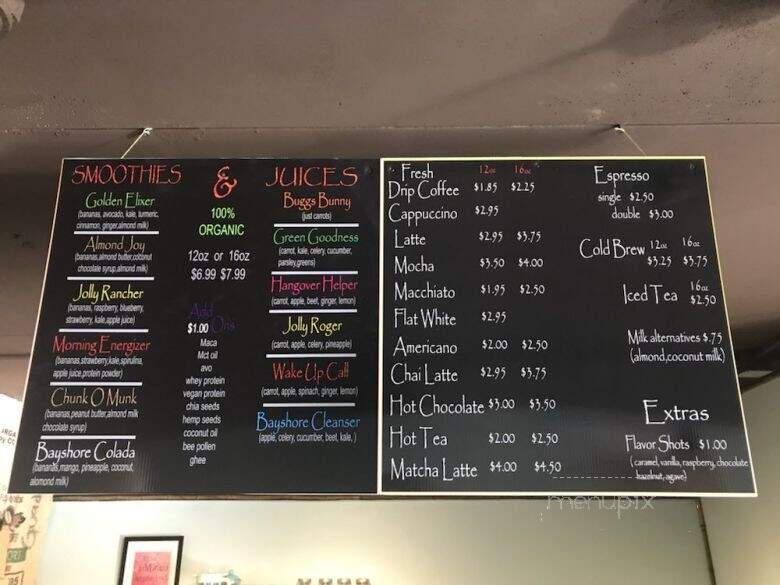 SMOOTHIES
Golden Elixer
(bananas, avocado, kale, turmeric,
cinnamon, ginger,almond milk)
Almond Joy
(bananas,almond butter,coconut
chocolate syrup,almond milk)
Jolly Rancher
(bananas, raspberry, blueberry,
strawberry, kale,apple juice)
Morning Energizer
(bananas,strawberry,kale,spirulina,
apple juice,protein powder)
Chunk O Munk
(bananas,peanut butter,almond milk
chocolate syrup)
Bayshore Colada
(bananas,mango, pineapple, coconut,
alomond milk)
&
100%
ORGANIC
12oz or 16oz
$6.99 $7.99
Add
$1.00 Ons
Maca
Mct oil
avo
whey protein
vegan protein
chia seeds
hemp seeds
coconut oil
bee pollen
ghee
JUICES
Buggs Bunny
(just carrots)
Green Goodness
(carrot, kale, celery, cucumber,
parsley,greens)
Hangover Helper
(carrot, apple, beet, ginger, lemon)
Jolly Roger
(carrot, apple, celery, pineapple)
Wake Up Call
(carrot, apple, spinach, ginger, lemon)
Bayshore Cleanser
(apple, celery, cucumber, beet, kale, )
Fresh 12oz 16oz
Drip Coffee $1.85 $2.25
Cappuccino $2.95
Latte $2.95 $3.75
Mocha $3.50 $4.00
Macchiato $1.95 $2.50
Flat White $2.95
Americano $2.00 $2.50
Chai Latte $2.95 $3.75
Hot Chocolate $3.00 $3.50
Hot Tea $2.00 $2.50
Matcha Latte $4.00 $4.50
Espresso
single $2.50
double $3.00
Cold Brew 12oz 16oz
$3.25 $3.75
Iced Tea 16oz
$2.50
Milk alternatives $.75
(almond,coconut milk)
Extras
Flavor Shots $1.00
(caramel,vanilla, raspberry, chocolate
hazelnut, agave)
menupix